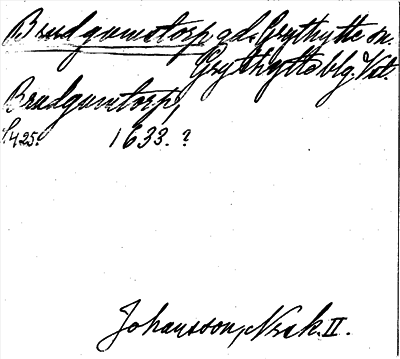 Brudgumstorp, gd. Grythytte sn.
Grythytte blg. Vstl.
Brudgumtorp,
S. 425. 1633. ?
Johansson, Norsk. II.